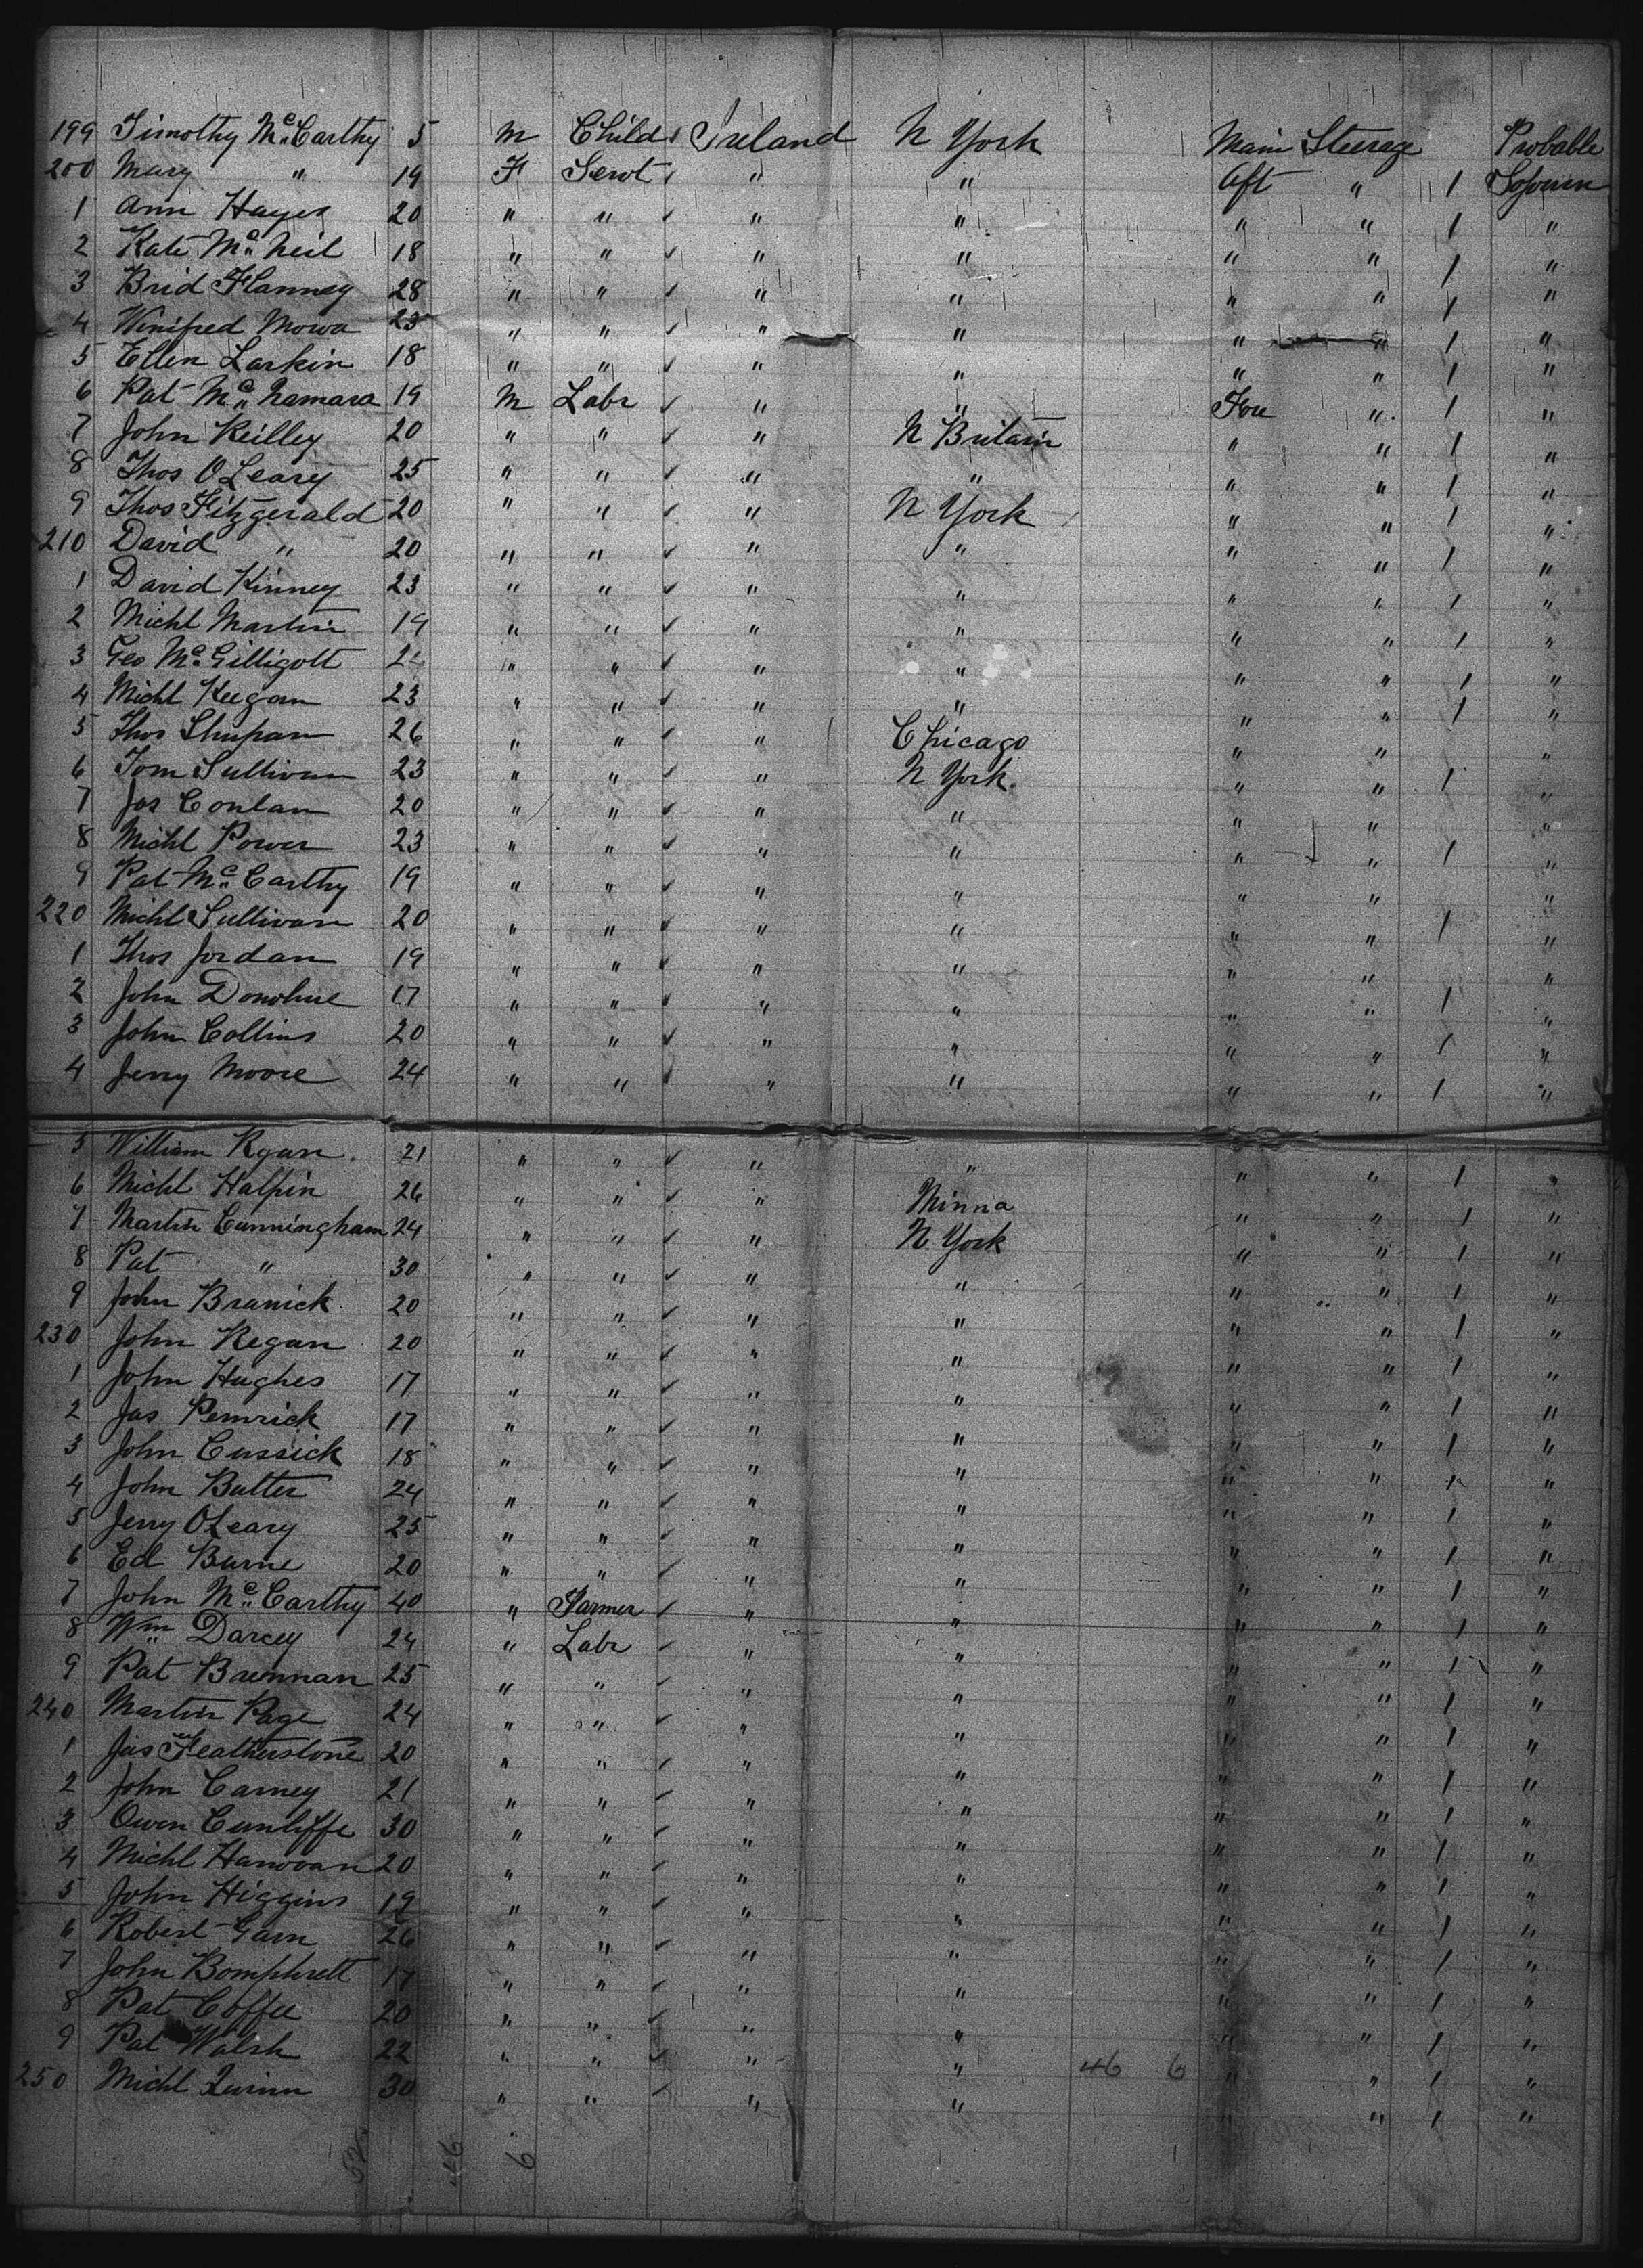 199 Timothy McCarthy 5 M Child Ireland N York Main Steerage Probable
200 Mary " 19 F Servt " " Aft " 1 Sojourn
1 Ann Hayes 20 " " " " " " 1 "
2 Kate McNeil 18 " " " " " " 1 "
3 Brid Flanney 28 " " " " " " 1 "
4 Winifred Mowa 23 " " " " " " 1 "
5 Ellen Larkin 18 " " " " " " 1 "
6 Pat McNamara 19 M Labr " " Fore " 1 "
7 John Reilley 20 " " " N Britain " " 1 "
8 Thos O Leary 25 " " " " " " 1 "
9 Thos Fitzgerald 20 " " " N York " " 1 "
210 David " 20 " " " " " " 1 "
1 David Kinney 23 " " " " " " 1 "
2 Michl Martin 19 " " " " " " 1 "
3 Geo McGilligott " " " " " " 1 "
4 Michl Keegan 23 " " " " " " 1 "
5 Thos 26 " " " Chicago " " "
6 Tom Sullivan 23 " " " N York. " " 1 "
7 Jas Conlan 20 " " " " " " "
8 Michl Power 23 " " " " " " 1 "
9 Pat McCarthy 19 " " " " " " "
220 Michl Sullivan 20 " " " " " " 1 "
1 Thos Jordan 19 " " " " " " "
2 John Donohue 17 " " " " " " 1 "
3 John Collins 20 " " " " " " 1 "
4 Jerry Moore 24 " " " " " " 1 "
5 William Ryan. 21 " " " " " " 1 "
6 Michl Halpin 26 " " " Minna " " 1 "
7 Martin Cunningham 24 " " " N York " " 1 "
8 Pat " 30 " " " " " " 1 "
9 John Branick 20 " " " " " " 1 "
230 John Regan 20 " " " " " " 1 "
1 John Hughes 17 " " " " " " 1 "
2 Jas Penrick 17 " " " " " " 1 "
3 John Cussick 18 " " " " " " 1 "
4 John Butter 24 " " " " " " 1 "
5 Jerry OLeary 25 " " " " " " 1 "
6 Ed Burne 20 " " " " " " 1 "
7 John McCarthy 40 " Farmer " " " " 1 "
8 Wm Darcey 24 " Labr " " " " 1 "
9 Pat Brennan 25 " " " " " " 1 "
240 Martin Page 24 " " " " " " 1 "
1 Jas Featherstone 20 " " " " " " 1 "
2 John Carney 21 " " " " " " 1 "
3 Owen Cunliffe 30 " " " " " " 1 "
4 Michl Hanovan 20 " " " " " " 1 "
5 John Higgins 19 " " " " " " 1 "
6 Robert Garn 26 " " " " " " 1 "
7 John Bomphrett 17 " " " " " " 1 "
8 Pat Coffee 20 " " " " " " 1 "
9 Pat Walsh 22 " " " " 46 6 " " 1 "
250 Michl Quinn 30 " " " " " " 1 "
52 46 6